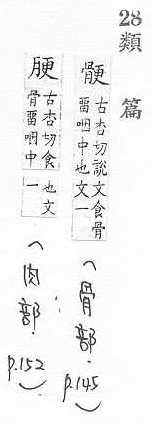 28類篇
骾 古杏切說文食骨
畱咽中也文一
(骨部. p.145)
腰 古杏切食也文
骨畱咽中一
(肉部. p.152)